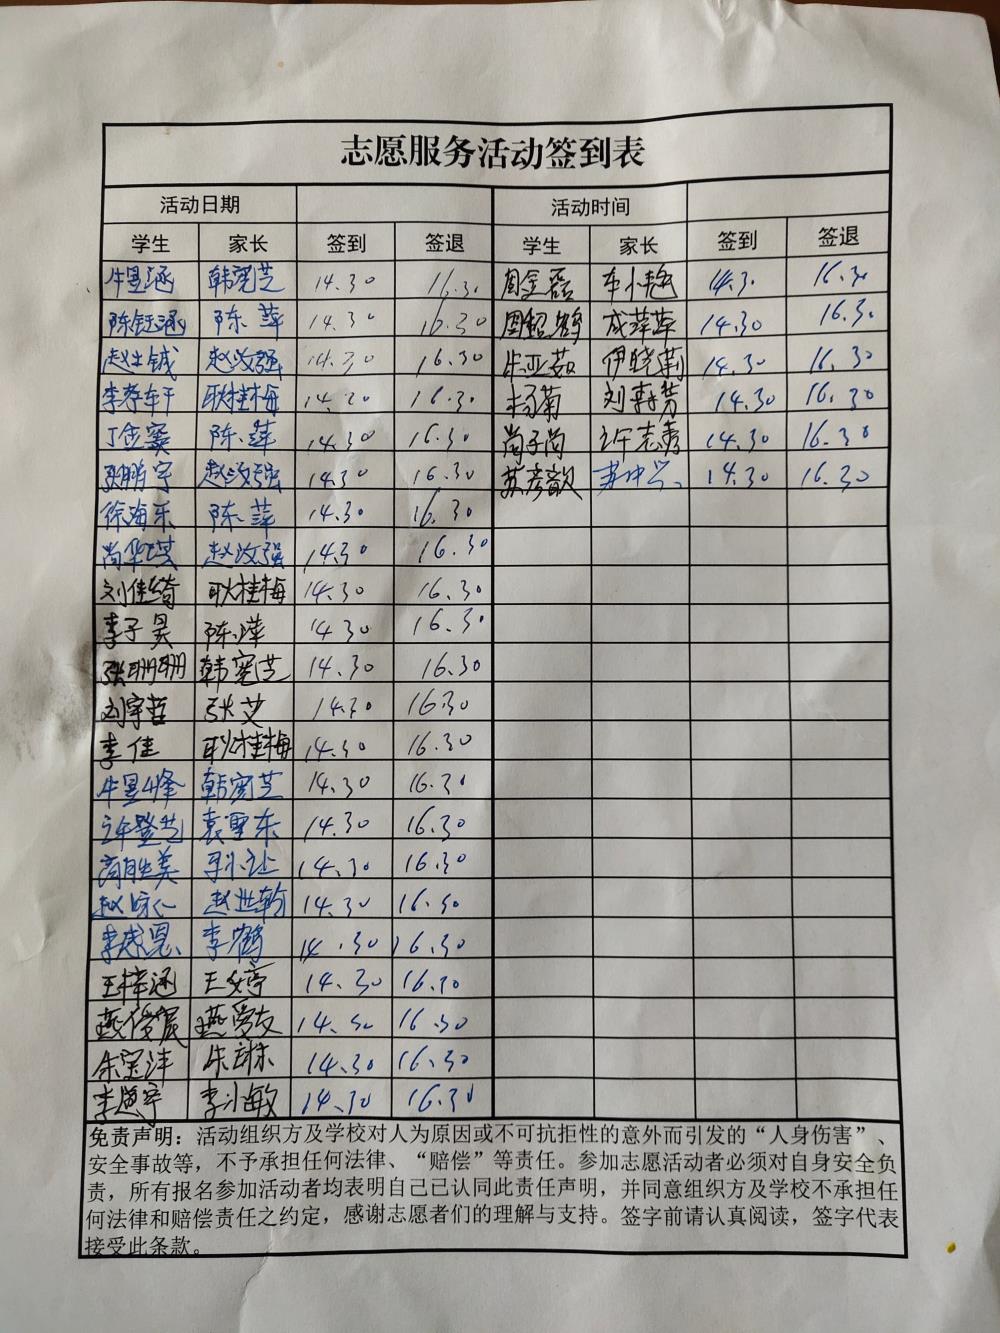 志愿服务活动签到表
活动日期 活动时间
学生 家长 签到 签退 学生 家长 签到 签退
牛昱涵 韩宽芝 14.30 16.30 周金磊 车小艳 14.30 16.30
陈钰涵 陈萍 14.30 16.30 周超鹤 成萍萍 14.30 16.30
赵仕铖 赵汝强 14.30 16.30 牛亚茹 伊晓莉 14.30 16.30
李孝轩 耿桂梅 14.30 16.30 杨菊 刘寿芳 14.30 16.30
丁金窦 陈萍 14.30 16.30 尚子尚 许志秀 14.30 16.30
张鹏宇 赵汝强 14.30 16.30 苏彦歆 14.30 16.30
徐海东 陈萍 14.30 16.30
尚华琪 赵汝强 14.30 16.30
刘佳绮 耿桂梅 14.30 16.30
李子昊 陈萍 14.30 16.30
张珊珊 韩宽芝 14.30 16.30
刘宇哲 张艾 14.30 16.30
李佳 耿桂梅 14.30 16.30
牛昱峰 韩宽芝 14.30 16.30
许登艺 袁聖东 14.30 16.30
高胜美 14.30 16.30
赵咏仁 赵世翰 14.30 16.30
李感恩 李鹤 14.30 16.30
王梓涵 王婷 14.30 16.30
燕俊宸 燕爱友 14.30 16.30
朱星沣 朱琳 14.30 16.30
李思宇 李小敏 14.30 16.30
免责声明：活动组织方及学校对人为原因或不可抗拒性的意外而引发的“人身伤害”、
安全事故等，不予承担任何法律、“赔偿”等责任。参加志愿活动者必须对自身安全负
责，所有报名参加活动者均表明自己已认同此责任声明，并同意组织方及学校不承担任
何法律和赔偿责任之约定，感谢志愿者们的理解与支持。签字前请认真阅读，签字代表
接受此条款。